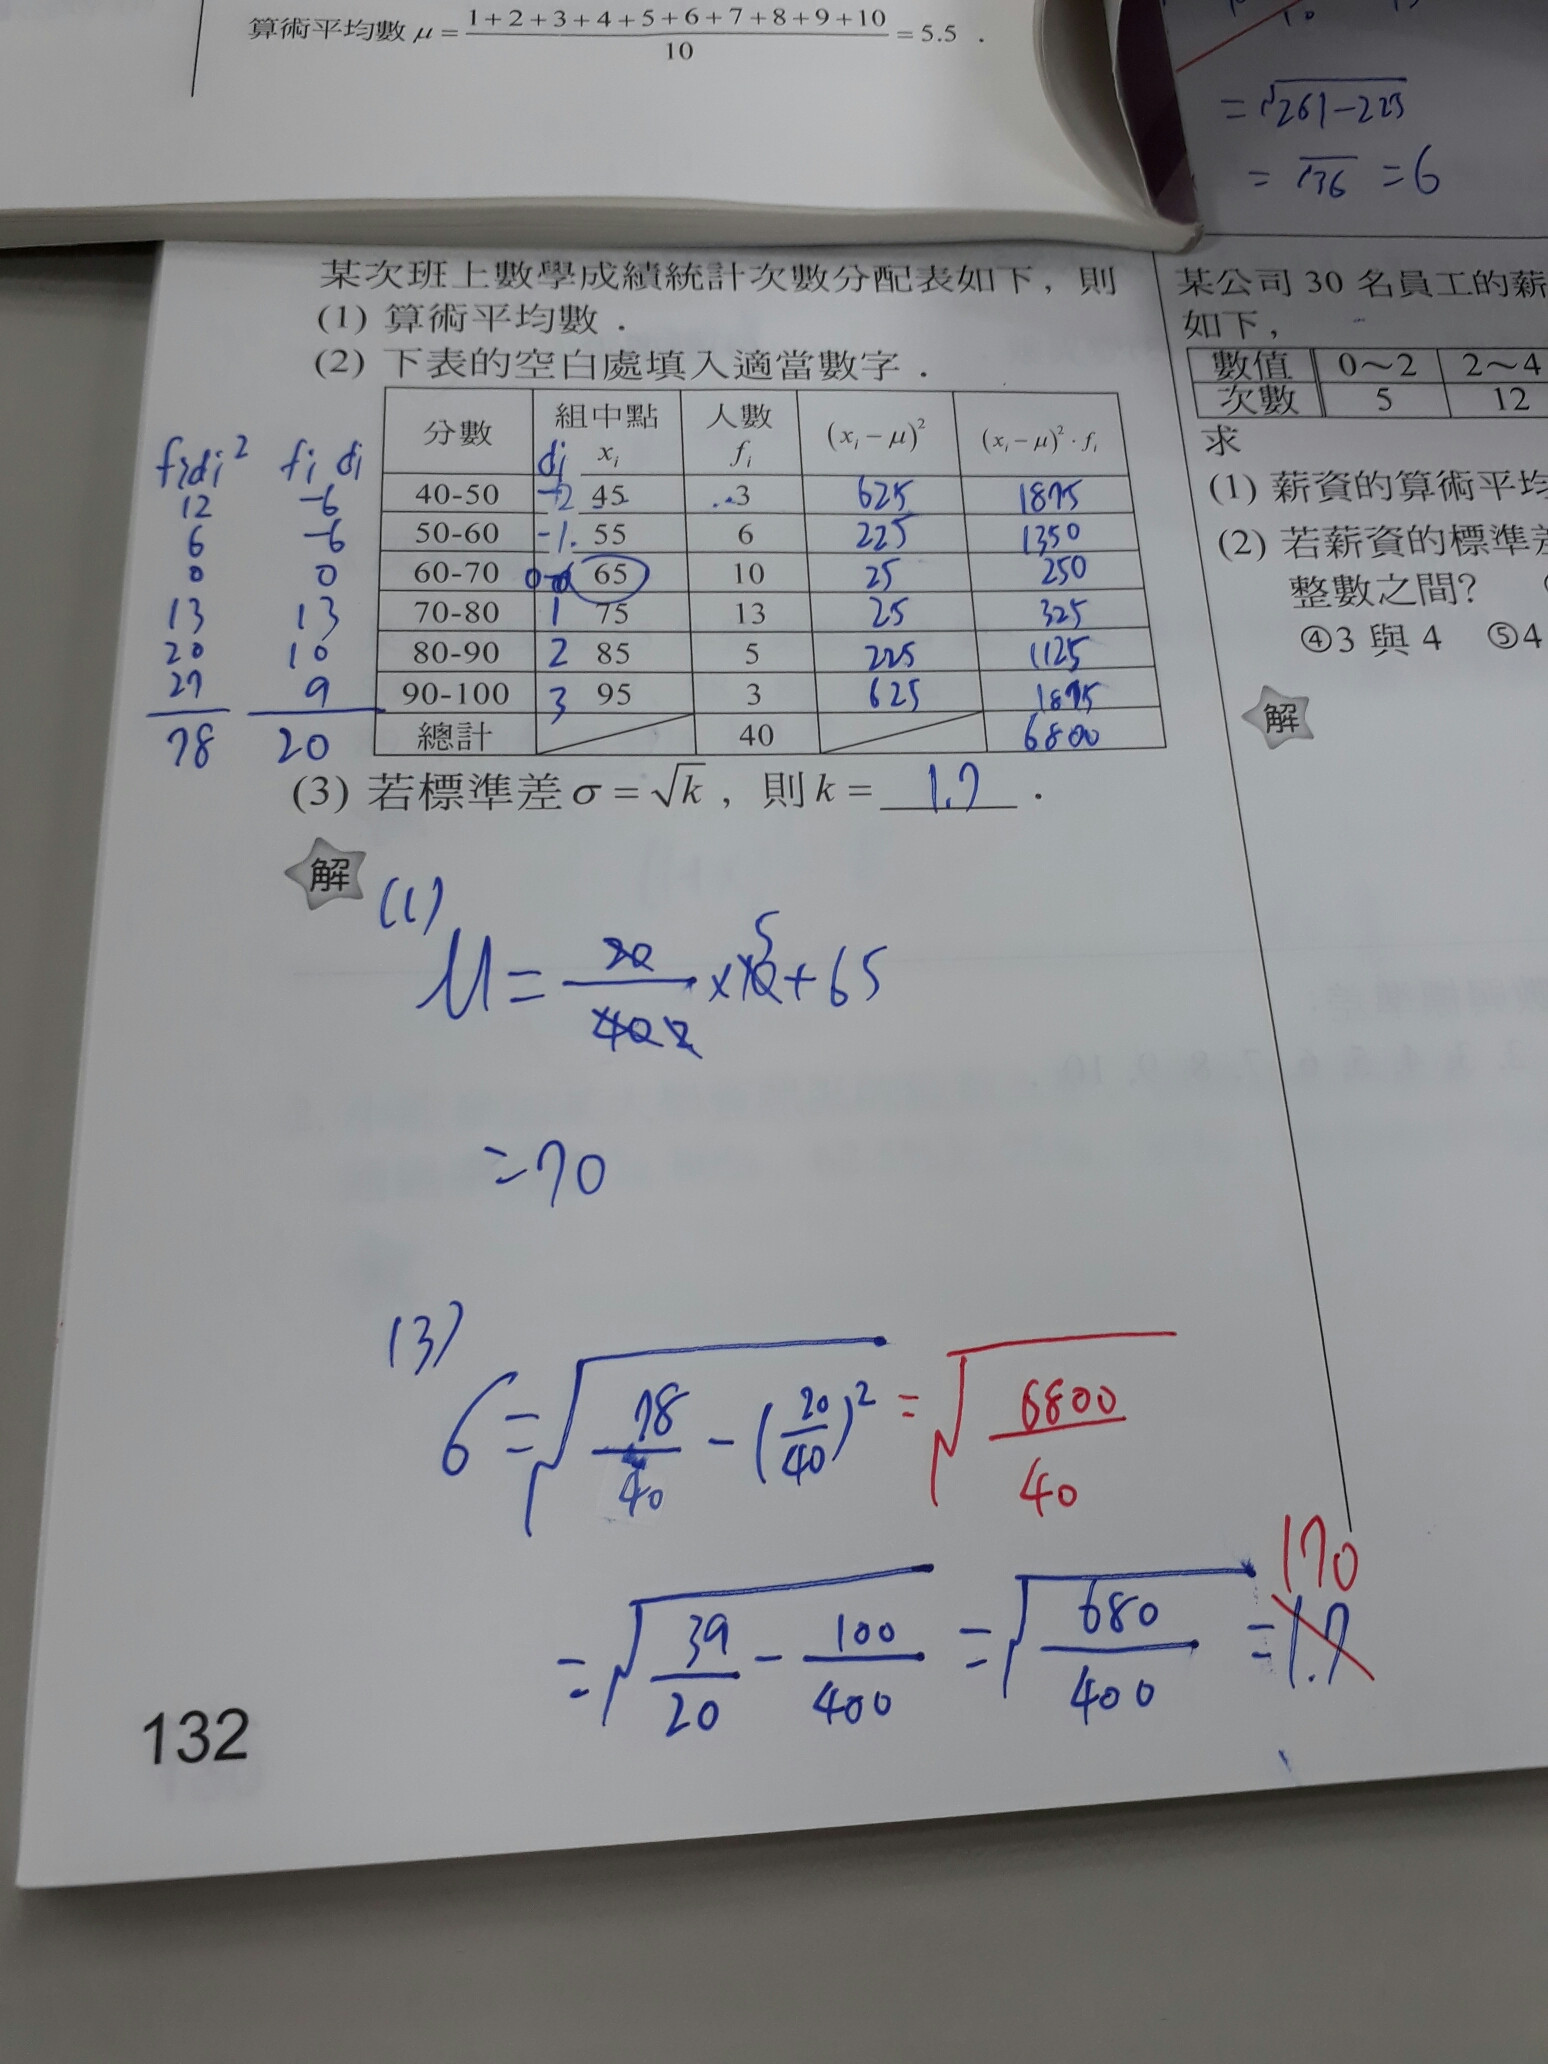 算術平均數 μ = 1+2+3+4+5+6+7+8+9+10 / 10 = 5.5 .
= √261-225
= √36 = 6
某次班上數學成績統計次數分配表如下，則
(1) 算術平均數 .
(2) 下表的空白處填入適當數字 .
fidi² fi di 分數 di 組中點 xi 人數 fi (xi − μ)² (xi − μ)² · fi
12 -6 40-50 -2 45 3 625 1875
6 -6 50-60 -1 55 6 225 1350
0 0 60-70 0 65 10 25 250
13 13 70-80 1 75 13 25 325
20 10 80-90 2 85 5 225 1125
27 9 90-100 3 95 3 625 1875
78 20 總計 40 6800
(3) 若標準差 σ = √k ，則 k = 1.7 .
解
(1)
μ = 20/40 2 × 10 5 + 65
= 70
(3)
6 = √78/40 - (20/40)² = √6800/40
= √39/20 - 100/400 = √680/400 = 1.7 170
132
某公司 30 名員工的薪
如下，
數值 0～2 2～4
次數 5 12
求
(1) 薪資的算術平均
(2) 若薪資的標準差
整數之間？
④3 與 4 ⑤4
解